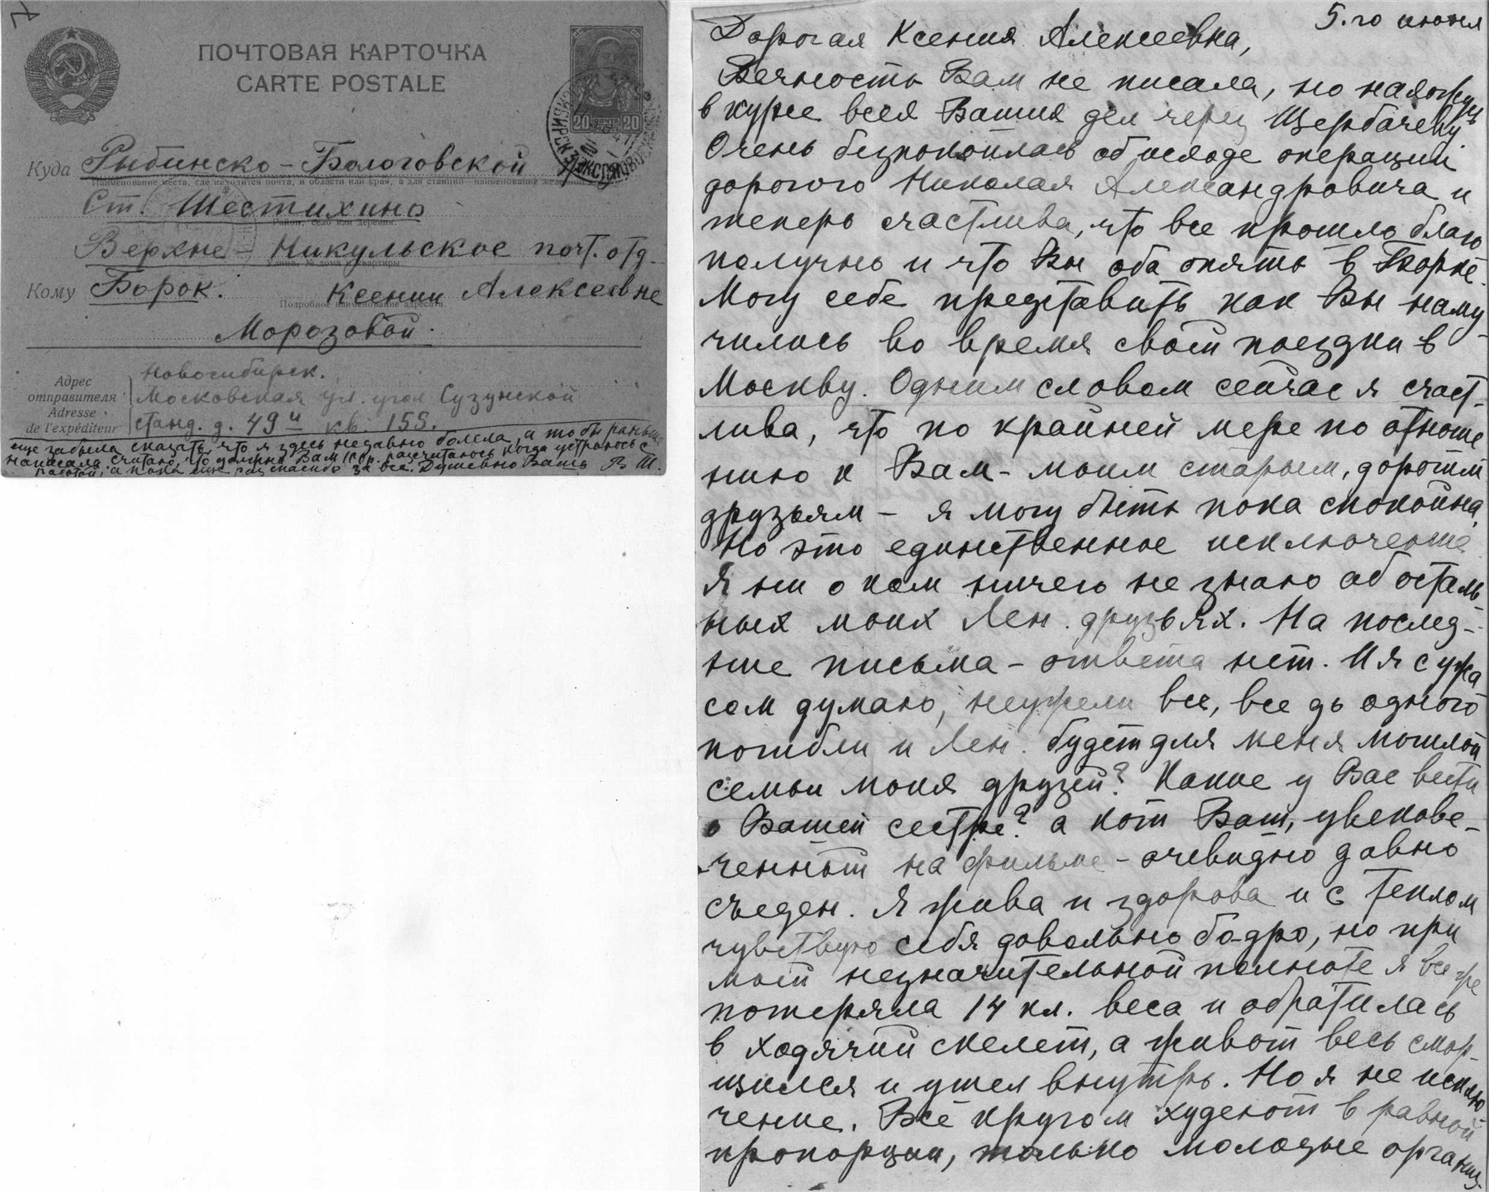 ПОЧТОВАЯ КАРТОЧКА
CARTE POSTALE
20 20
Куда Рыбинско-Бологовской
ст. Шестихино
Верхне-Никульское почт. отд.
Кому Борок. Ксении Алексеевне
Морозовой.
Адрес отправителя
Adresse de l'expéditeur
Новосибирск.
Московская ул. угол Сузунской
станд. д. 49 и кв. 155.
еще забыла сказать, что я здесь недавно болела, а то бы раньше
написала. Считаю, что должна Вам 150р. рассчитаюсь когда устроюсь с
работой, а пока еще раз спасибо за все. Душевно Ваша
5.го июня
Дорогая Ксения Алексеевна,
Вечность Вам не писала, но нахожусь
в курсе всех Ваших дел через Щербачеву
Очень безпокоилась об исходе операции
дорогого Николая Александровича и
теперь счастлива, что все прошло благо
получно и что Вы оба опять в Борке.
Могу себе представить как Вы наму-
чились во время своей поездки в
Москву. Одним словом сейчас я счаст-
лива, что по крайней мере по отноше
нию к Вам - моим старым, дорогим
друзьям - я могу быть пока спокойна.
Но это единственное исключение
Я ни о ком ничего не знаю об осталь-
ных моих Лен. друзьях. На послед-
ние письма - ответа нет. И я с ужа
сом думаю, неужели все, все до одного
погибли и Лен. будет для меня могилой
семьи моих друзей? Какие у Вас вести
о Вашей сестре? а кот Ваш, увекове-
ченный на фильме - очевидно давно
съеден. Я жива и здорова и с теплом
чувствую себя довольно бодро, но при
моей незначительной полноте я все же
потеряла 14 кл. веса и обратилась
в ходячий скелет, а живот весь смор-
щился и ушел внутрь. Но я не исклю-
чение. Все кругом худеют в равной
пропорции, только молодые организ-